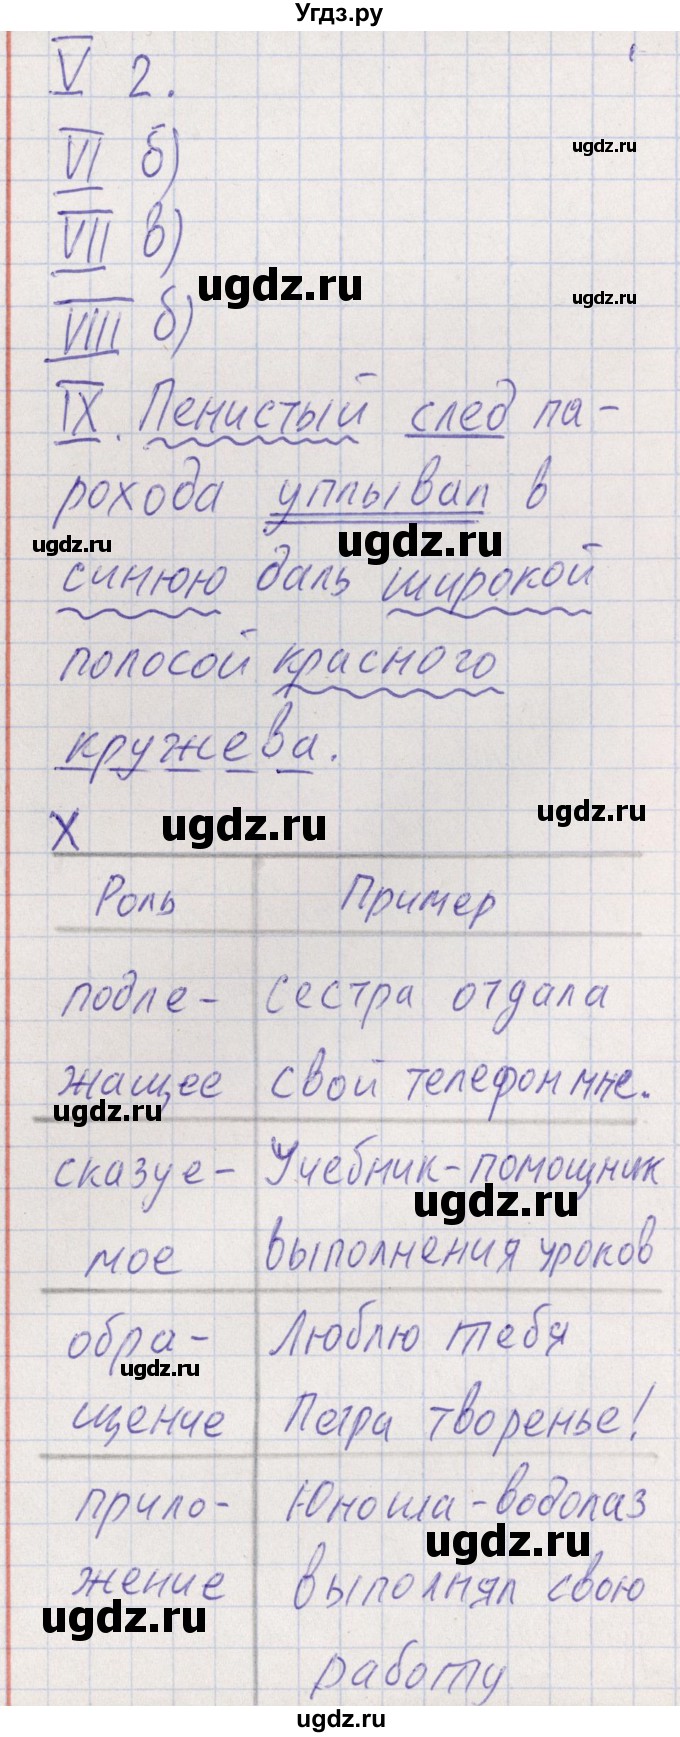 Угдз.ру
V 2.
ugdz.ru
VI б)
VII в)
ugdz.ru
ugdz.ru
VIII б)
IX. Пенистый след па-
рохода уплывал в
ugdz.ru
ugdz.ru
синюю даль широкой
полосой красного
кружева.
X
ugdz.ru
ugdz.ru
Роль Пример
подле- Сестра отдала
жащее свой телефон мне.
ugdz.ru
сказуе- Учебник-помощник
ugdz.ru
мое выполнения уроков
обра- Люблю тебя
ugdz.ru
щение Петра творенье!
прило- Юноша-водолаз
ugdz.ru
жение выполнял свою
ugdz.ru
работу
ugdz.ru